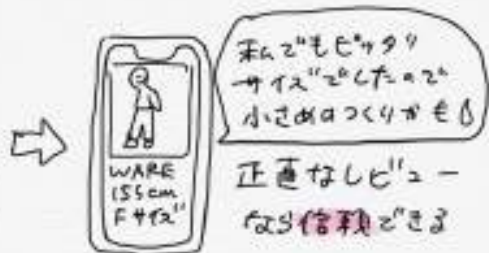 WARE
155cm
Fサイズ
私でもピッタリ
サイズでしたので
小さめのつくりかも
正直なレビュー
なら信頼できる